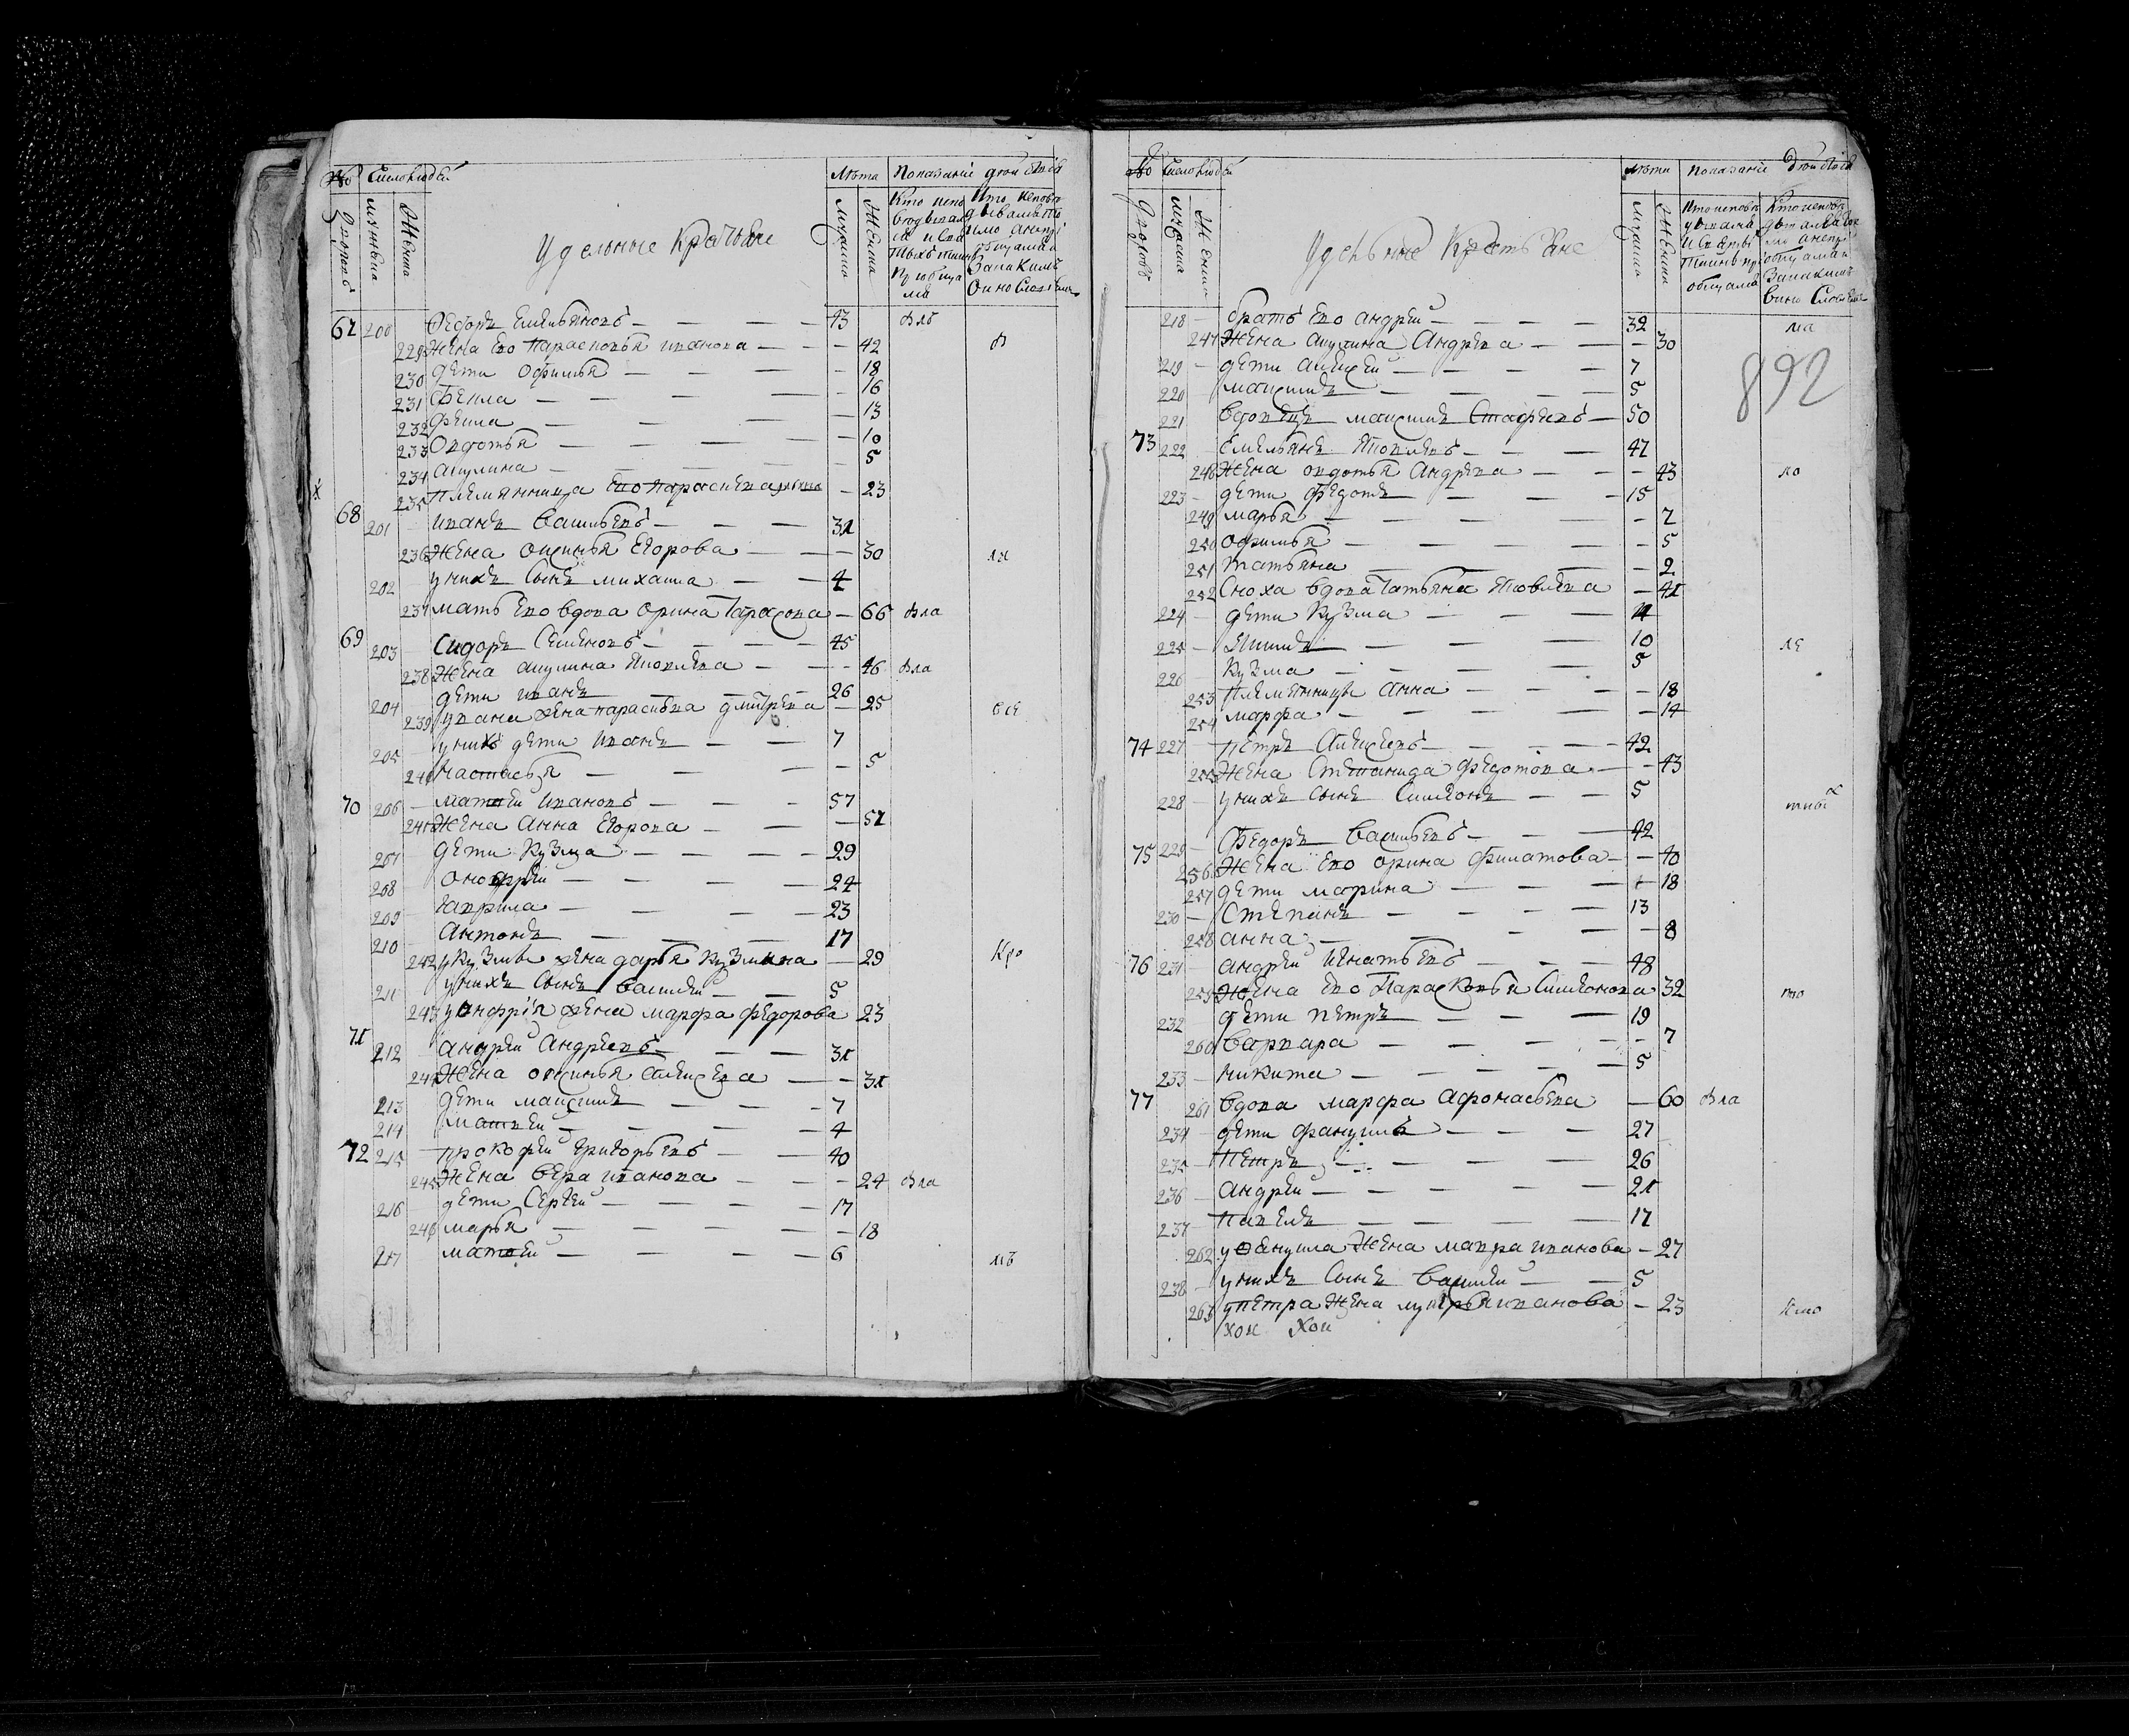 № Число людей Лѣта Показаніе дѣйства
дворовъ мужеска женска мужска женска
Удельные Крестьяне
67 200 Федоръ Емельяновъ — 43
229 Жена ево Парасковья иванова — 42
230 дети Офимья — 18
231 Фекла — 16
232 Фекла — 13
233 Овдотья — 10
234 Акулина — 5
235 племянница ево параскева — 23
68 201 иванъ Васильевъ — 31
236 Жена оксинья Егорова — 30
202 у нихъ Сынъ михаила — 4
237 мать ево вдова орина Тарасова — 66
69 203 Сидоръ Семеновъ — 45
238 Жена акулина Яковлева — 46
204 дети иванъ — 26
239 у ивана жена парасковья дмитрева — 25
205 у нихъ дети иванъ — 7
240 настасья — 5
70 206 матвеи ивановъ — 57
241 Жена Анна Егорова — 51
207 дети Кузма — 29
208 Онофреи — 24
209 гаврила — 23
210 Антонъ — 17
242 у Кузмы жена дарья Кузмина — 29
211 у нихъ Сынъ Василеи — 5
243 у онофрія жена марфа федорова 23
71 212 андреи Андреевъ — 31
244 Жена оксинья Алексева — 31
213 дети максимъ — 7
214 матвеи — 4
72 215 прокофеи Григорьевъ — 40
245 Жена вера иванова — 24
216 дети Сергеи — 17
246 марья — 18
217 матвеи — 6
№ Число людей Лѣта Показаніе дѣйства
дворовъ мужеска женска мужска женска
Удельные Крестьяне
218 братъ ево андреи — 32
247 Жена акулина Андрева — 30
892
219 дети алексеи — 7
220 максимъ — 5
221 вдовецъ максимъ Стафеевъ — 50
73 222 Емельянъ Яковлевъ — 47
248 Жена овдотья Андрева — 43
223 дети Федотъ — 15
249 марья — 7
250 офимья — 5
251 татьяна — 2
252 Сноха вдова Татьяна Яковлева — 41
224 дети Кузма — 11
225 Якимъ — 10
226 Кузма — 5
253 племянницы Анна — 18
254 марфа — 14
74 227 петръ Алексеевъ — 42
255 Жена Степанида федотова — 43
228 у нихъ Сынъ Симеонъ — 5
75 229 Федоръ Васильевъ — 42
256 Жена ево орина филатова — 40
257 дети марина — 18
230 Степанъ — 13
258 анна — 8
76 231 андреи Игнатьевъ — 48
259 Жена ево Парасковья Симеонова 32
232 дети петръ — 19
260 варвара — 7
233 никита — 5
77 261 вдова марфа Афонасьева — 60
234 дети фануилъ — 27
235 Петръ — 26
236 андреи — 21
237 павелъ — 17
262 у фануила Жена мавра иванова — 27
238 у нихъ Сынъ Василеи — 5
263 у петра Жена лукерья иванова — 23